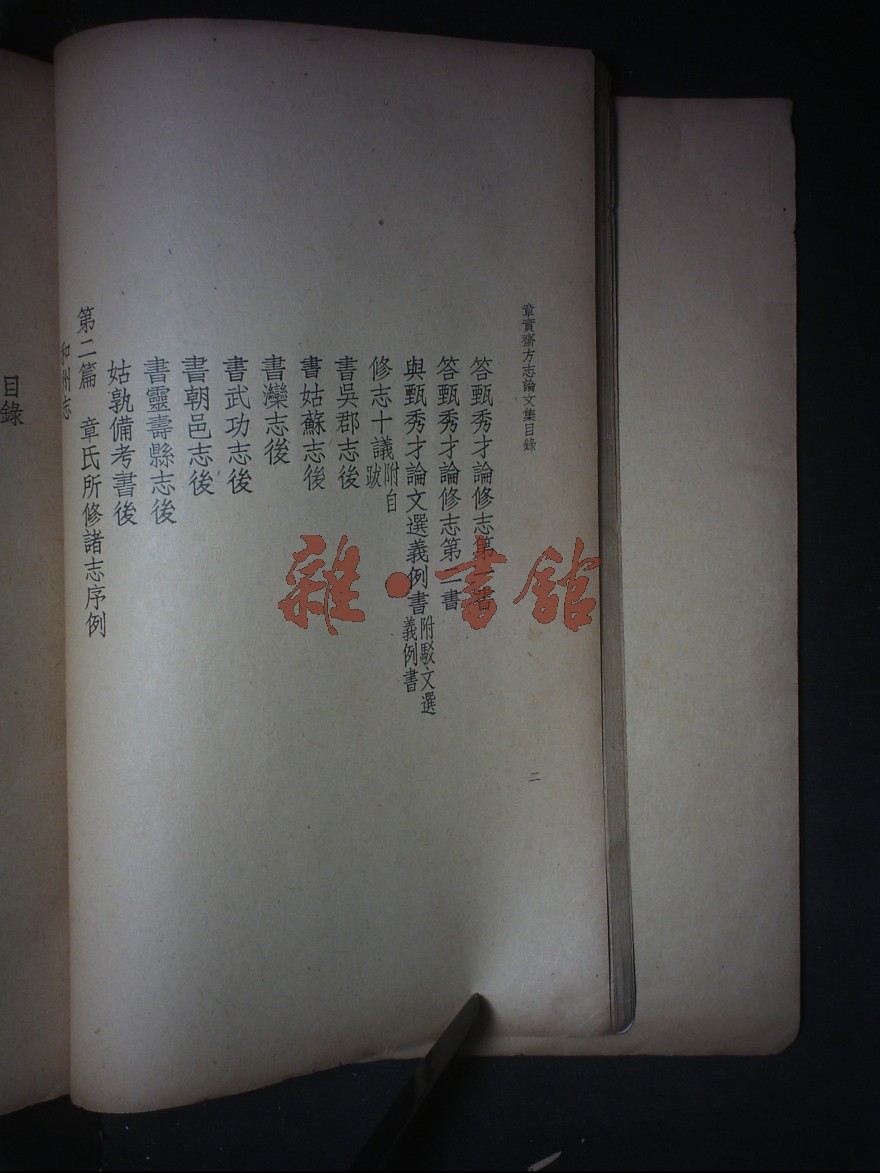 章實齋方志論文集目錄
二
答甄秀才論修志第一書
答甄秀才論修志第二書
與甄秀才論文選義例書附駁文選義例書
修志十議附自跋
書吳郡志後
書姑蘇志後
書灤志後
書武功志後
書朝邑志後
書靈壽縣志後
姑孰備考書後
第二篇 章氏所修諸志序例
和州志
目錄
雜·書館